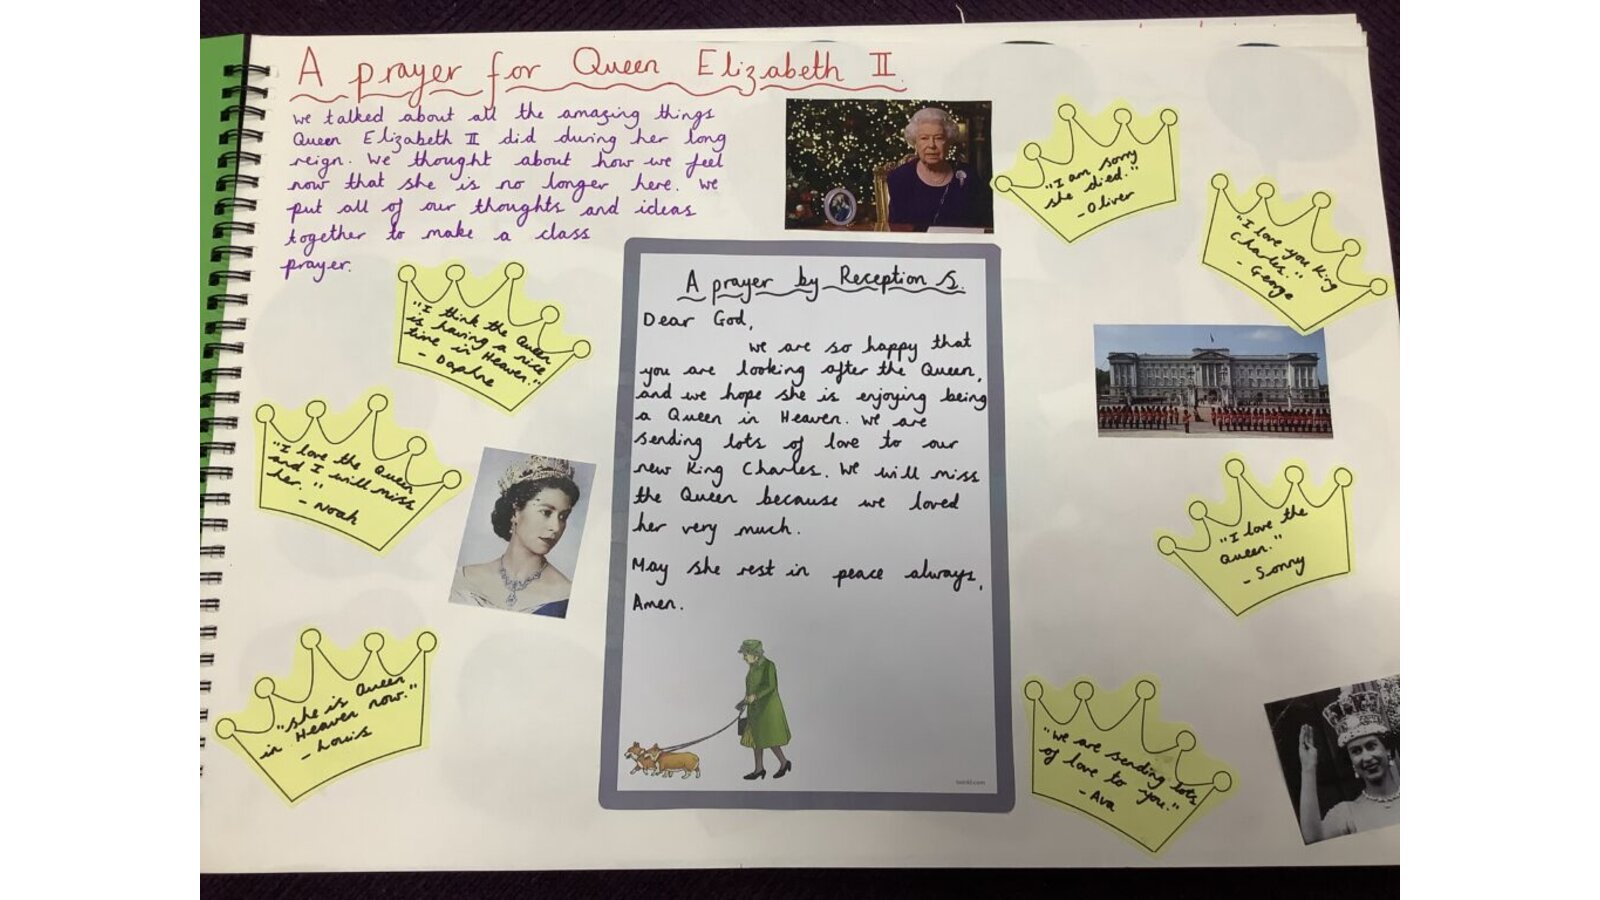 A prayer for Queen Elizabeth II.
we talked about all the amazing things
Queen Elizabeth II did during her long
reign. We thought about how we feel
now that she is no longer here. We
put all of our thoughts and ideas
together to make a class
prayer.
"I think the Queen
is having a nice
time in Heaven."
- Daphne
"I love the Queen
and I will miss
her."
- Noah
"she is Queen
in Heaven now."
- Louis
A prayer by Reception S.
Dear God,
we are so happy that
you are looking after the Queen,
and we hope she is enjoying being
a Queen in Heaven. We are
sending lots of love to our
new King Charles. We will miss
the Queen because we loved
her very much.
May she rest in peace always,
Amen.
twinkl.com
"I am sorry
she died."
- Oliver
"I love you King
Charles."
- George
"I love the
Queen."
- Sonny
"we are sending lots
of love to you."
- Ava